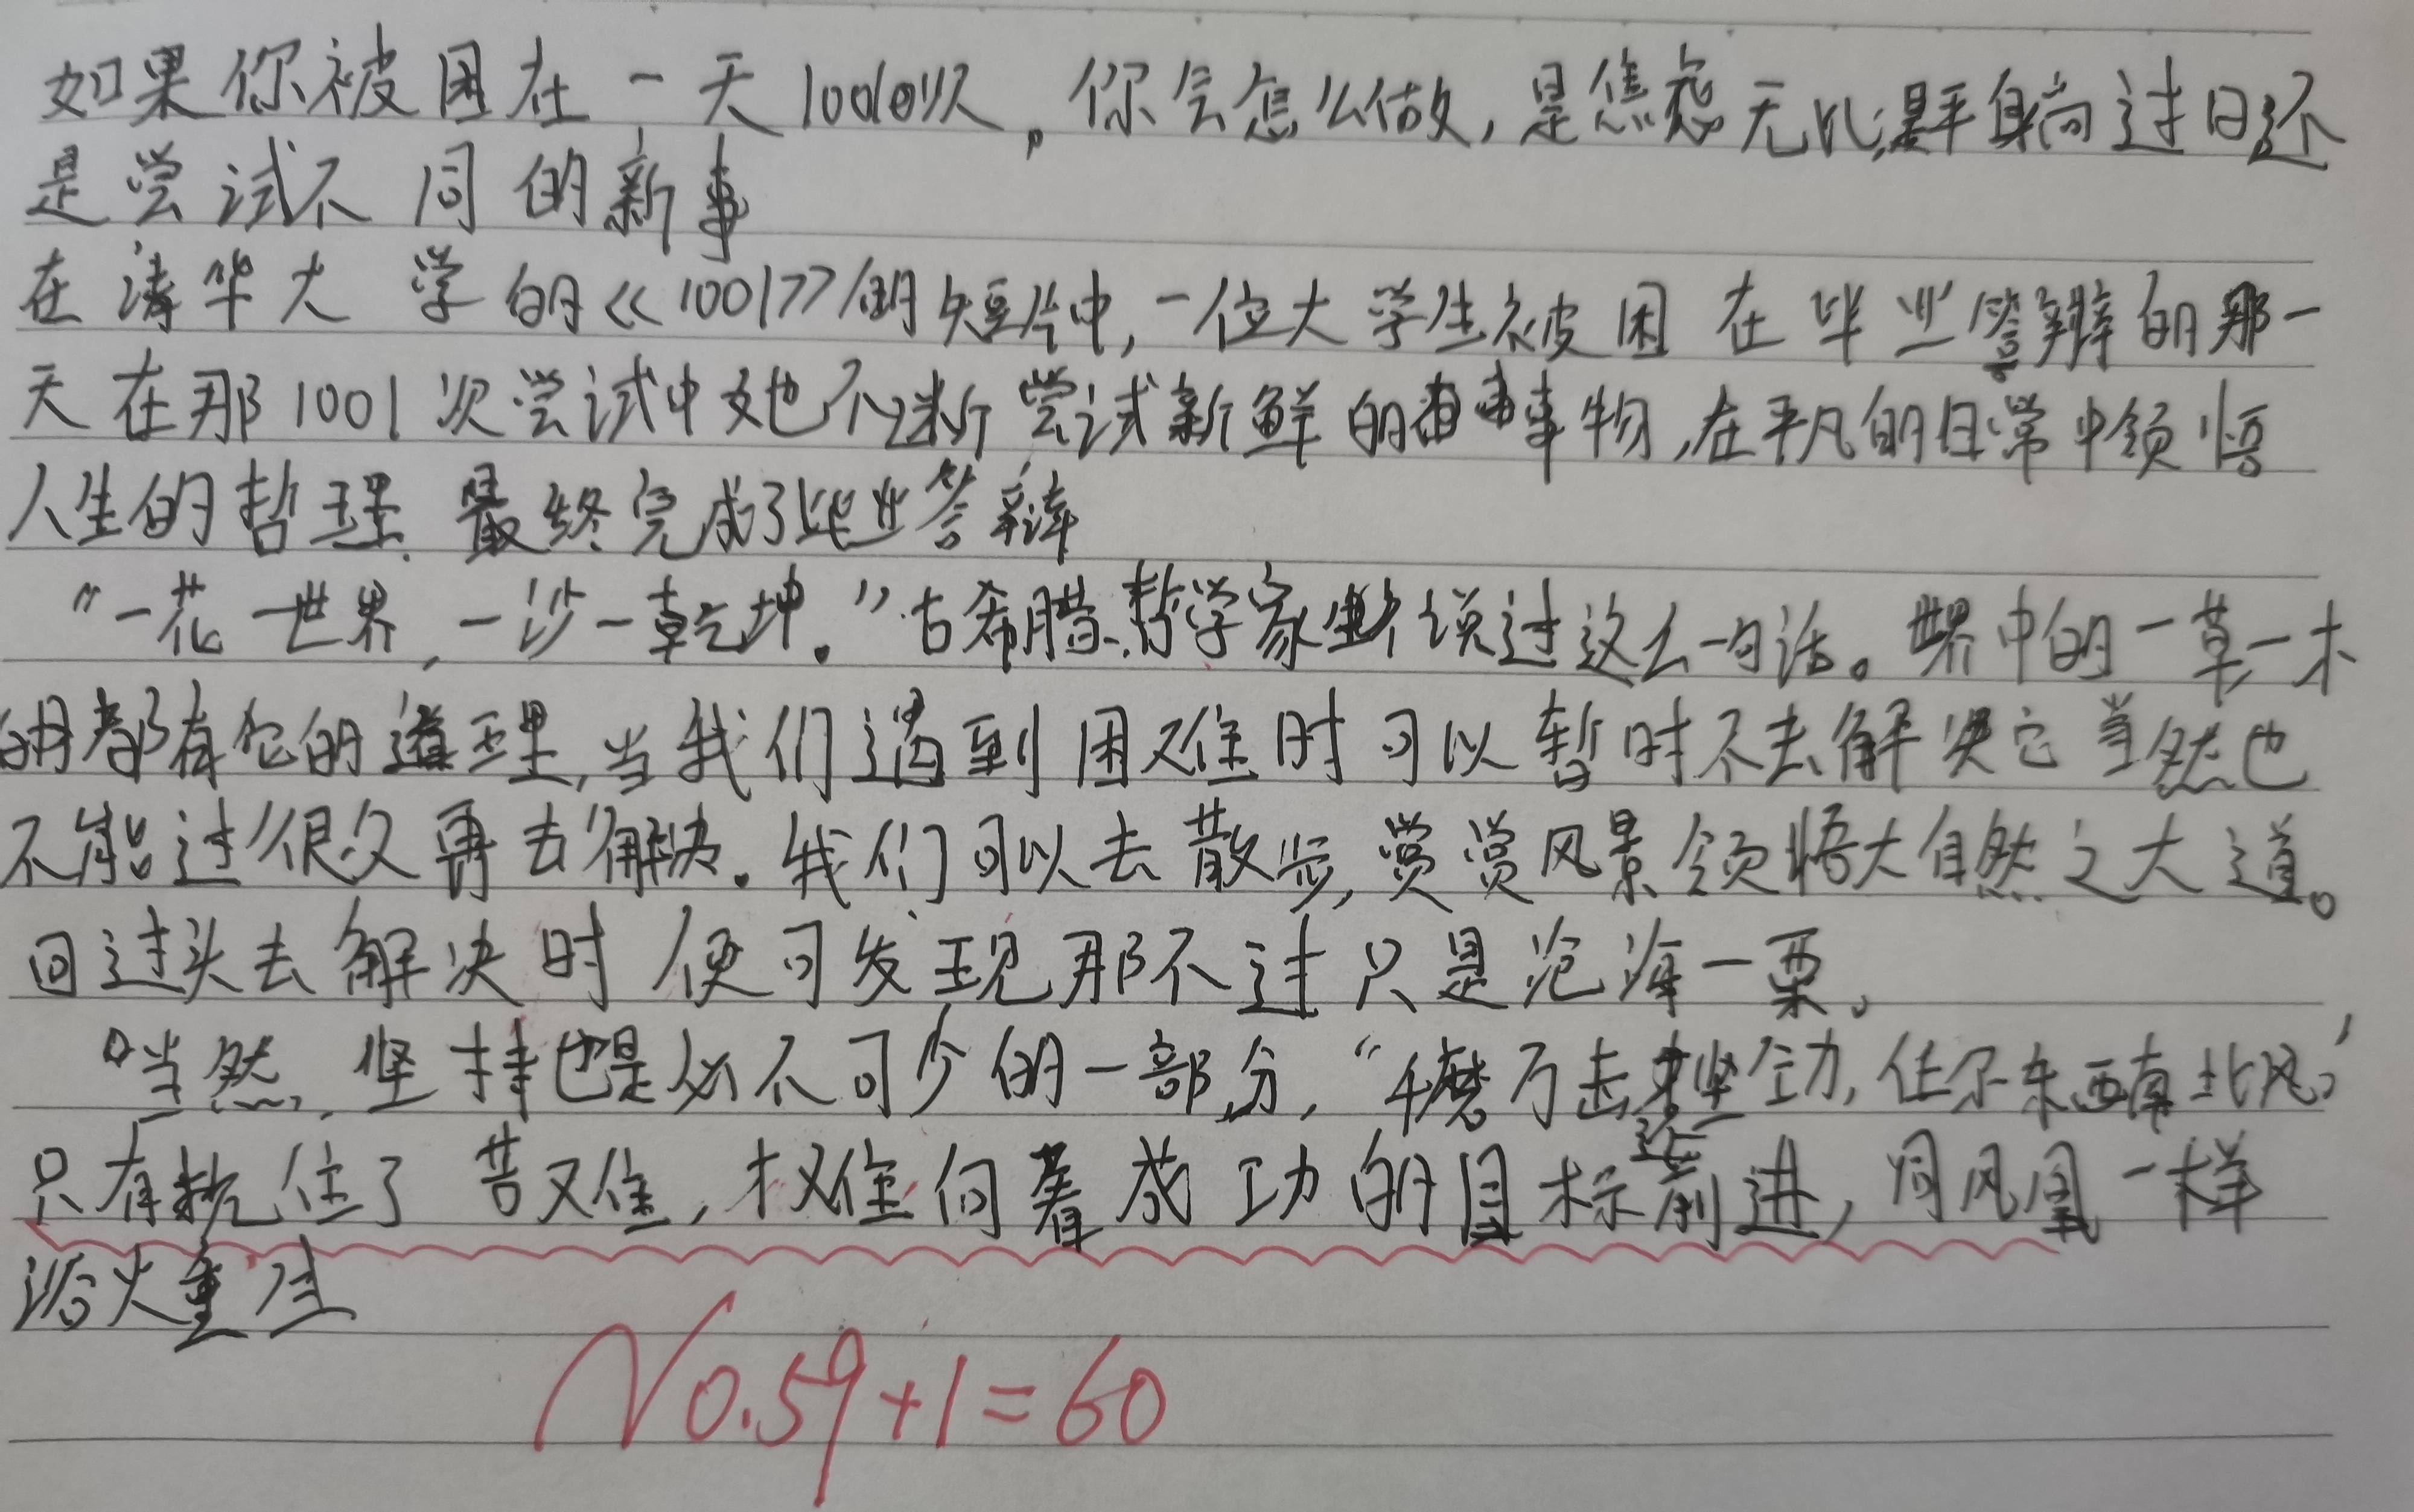 如果你被困在一天1001次，你会怎么做,是焦虑无比,是平躺过日还
是尝试不同的新事
在清华大学的《1001》的短片中,一位大学生被困在毕业答辩的那一
天在那1001次尝试中她不断尝试新鲜的事物,在平凡的日常中领悟
人生的哲理.最终完成了毕业答辩
“一花一世界,一沙一乾坤。”古希腊哲学家说过这么一句话。世界中的一草一木
都有它的道理,当我们遇到困难时可以暂时不去解决它当然也
不能过很久再去解决。我们可以去散步,赏赏风景领悟大自然之大道。
回过头去解决时便可发现那不过只是沧海一粟。
当然,坚持也是必不可少的一部分,“千磨万击还坚劲,任尔东西南北风”
只有抗住了苦难,才难向着成功的目标前进,同凤凰一样
浴火重生
No.59+1=60